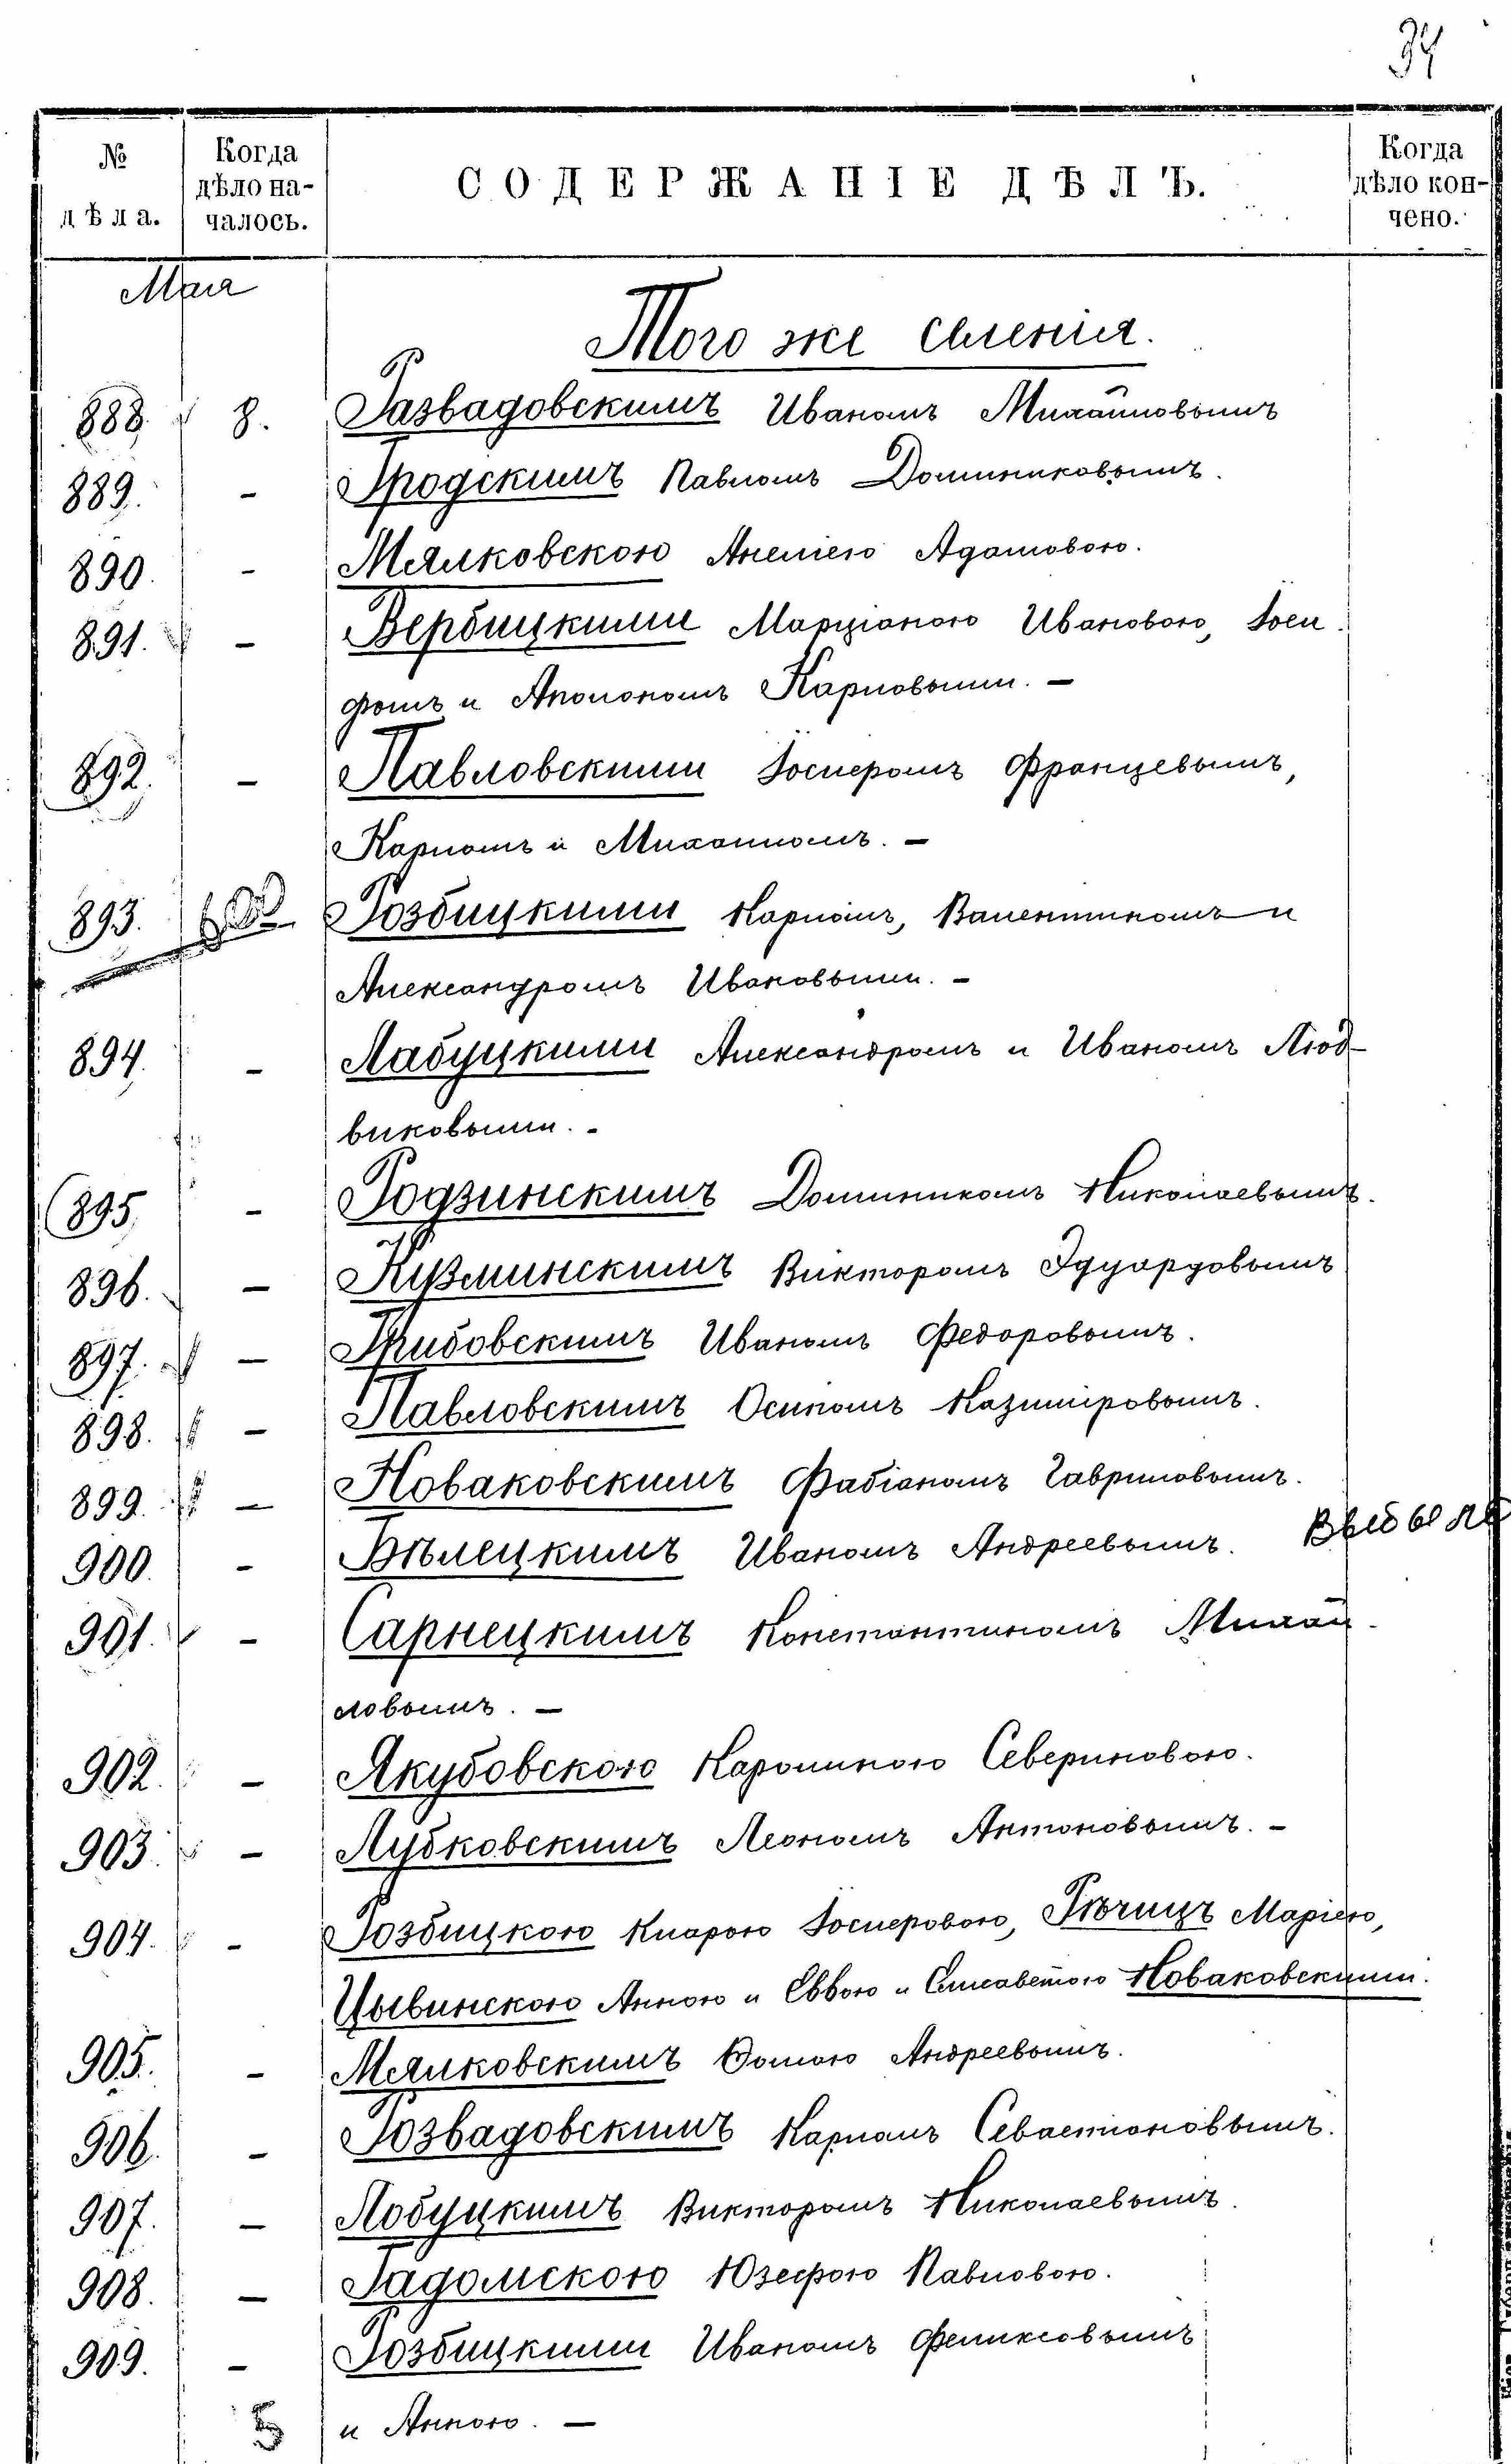 34
№ дѣла.
Когда дѣло началось.
СОДЕРЖАНІЕ ДѢЛЪ.
Когда дѣло кончено.
Мая
Того же селенія.
888. 8. Развадовскимъ Иваномъ Михайловымъ
889. - Гродскимъ Павломъ Доминиковымъ.
890. - Мялковскою Анелею Адамовою.
891. - Вербицкими Марціаною Ивановою, Іоси
фомъ и Аполономъ Карловыми. -
892. - Павловскими Іосиеромъ Францевымъ,
Карломъ и Михаиломъ. -
893. Розбицкими Карломъ, Валентиномъ и
Александромъ Ивановыми. -
894. - Лабуцкими Александромъ и Иваномъ Люд-
виковыми. -
895. - Родзинскимъ Доминикомъ Николаевымъ.
896. - Кузминскимъ Викторомъ Эдуардовымъ
897. - Грибовскимъ Иваномъ Федоровымъ.
898. - Павловскимъ Осипомъ Казиміровымъ.
899. - Новаковскимъ Фабіаномъ Гавриловымъ.
900. - Бѣлецкимъ Иваномъ Андреевымъ. Выбылъ
901. - Сарнецкимъ Константиномъ Михай
ловымъ. -
902. - Якубовскою Каролиною Севериновою.
903. - Лубковскимъ Леономъ Антоновымъ. -
904. - Розбицкою Кларою Іосперовою, Рѣчицъ Маріею,
Цывинскою Анною и Еввою и Елисаветою Новаковскими.
905. - Мялковскимъ Фомою Андреевымъ.
906. - Розвадовскимъ Карломъ Севастіановымъ.
907. - Лобуцкимъ Викторомъ Николаевымъ.
908. - Гадомскою Юзефою Павловою.
909. - Розбицкими Иваномъ Феликсовымъ
и Анною. -